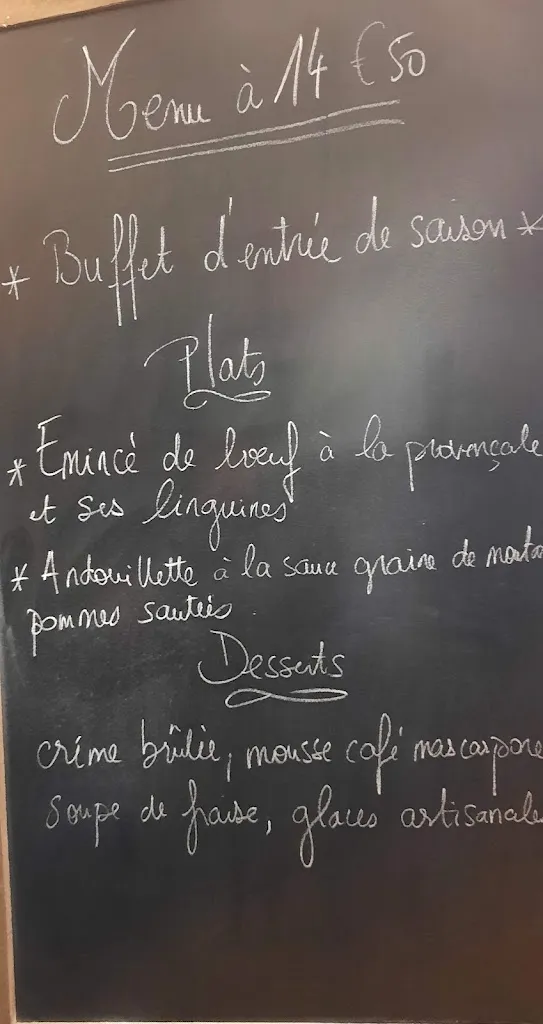 Menu à 14 € 50
* Buffet d'entrée de saison *
Plats
* Emincé de boeuf à la provençale
et ses linguines
* Andouillette à la sauce graine de
pommes sautées.
Desserts
crème brûlée, mousse café mascarpone
soupe de fraise, glaces artisanales